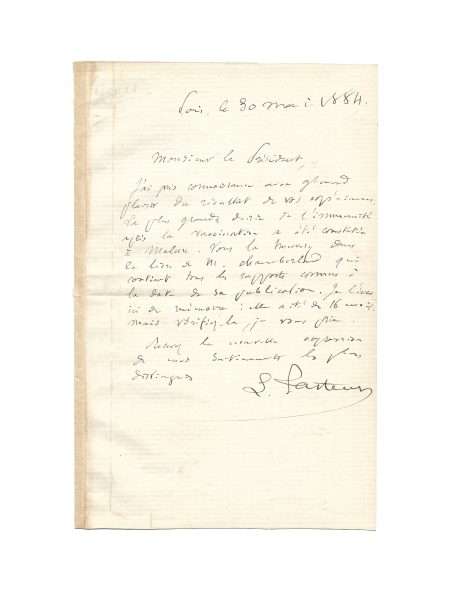 Paris, le 30 mai 1884.
Monsieur le Président,
J'ai pris connaissance avec grand
plaisir du résultat de vos expériences.
La plus grande durée de l'immunité
après la vaccination a été constatée
à Melun. Vous la trouverez dans
le livre de M. Chamberland qui
contient tous les rapports connus à
la date de sa publication. Je l'écris
ici de mémoire : elle a été de 16 mois.
mais vérifiez-la, je vous prie
Recevez la nouvelle expression
de mes sentiments les plus
distingués
L. Pasteur